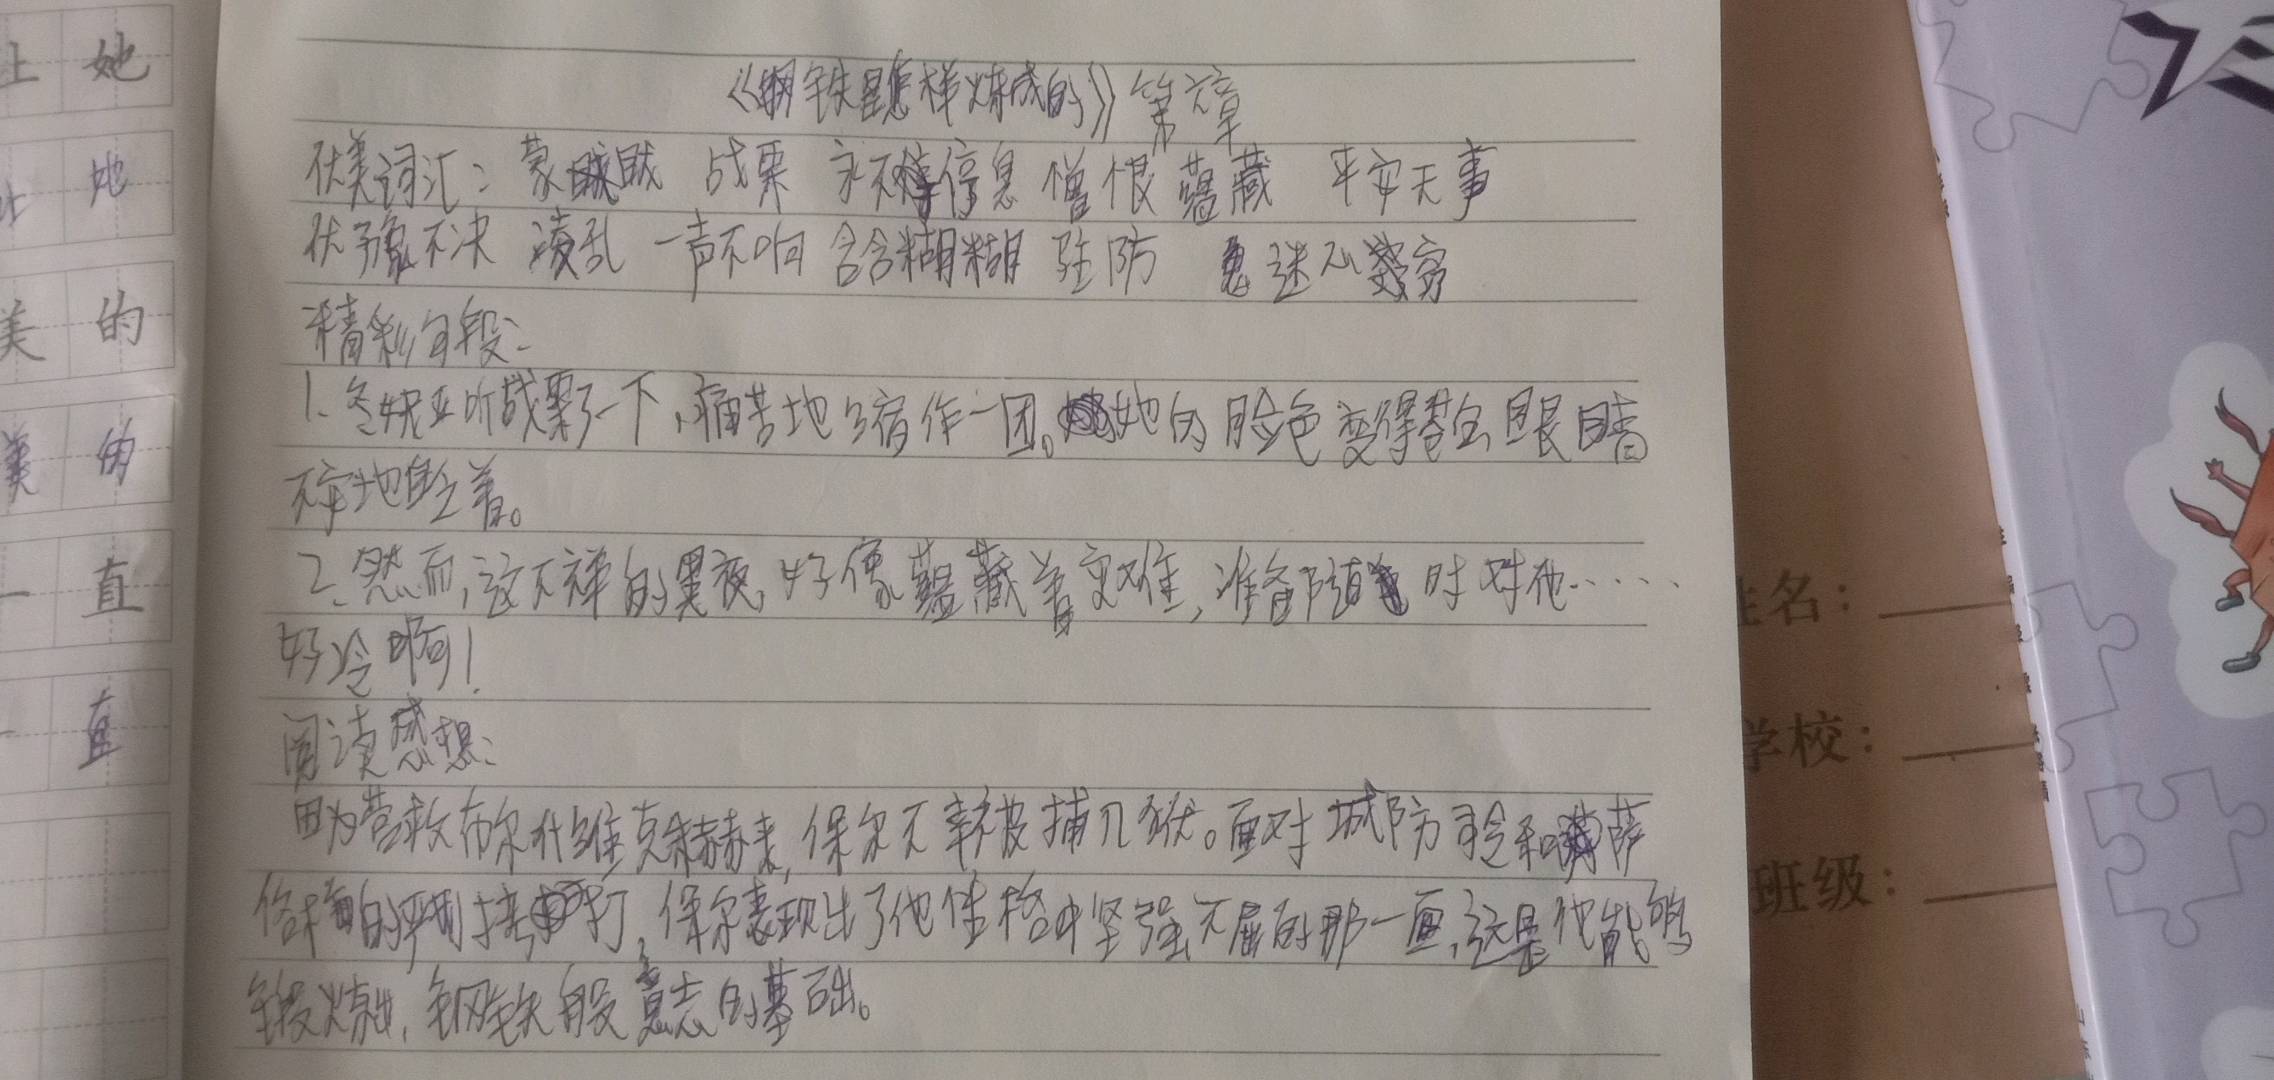 上 她
上 她
美 的
美 的
一 直
一 直
《钢铁是怎样炼成的》第六章
优美词汇：蒙眬 战栗 永不停息 憎恨 蕴藏 平安无事
犹豫不决 凌乱 一声不响 含含糊糊 驻防 鬼迷心窍
精彩句段：
1、冬妮亚听战栗了一下，痛苦地缩作一团。她的脸色变得苍白，眼睛
不安地睁着。
2、然而，这不祥的黑夜，好像蕴藏着灾难，准备随时对他……
好冷啊！
阅读感想：
因为营救布尔什维克朱赫来，保尔不幸被捕入狱。面对城防司令和萨
洛梅的严刑拷打，保尔表现出了他性格中坚强不屈的那一面，这是他能够
锻炼出，钢铁般意志的基础。
姓名：
学校：
班级：